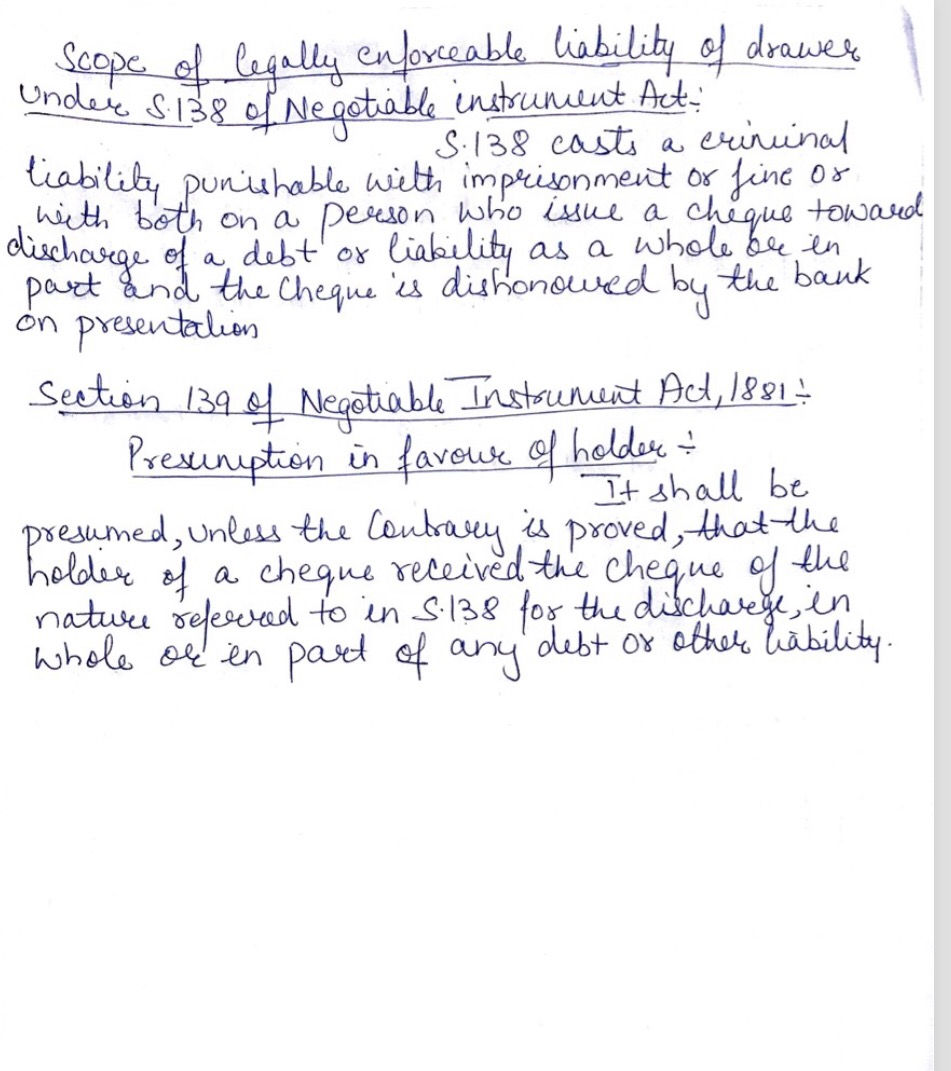 Scope of legally enforceable liability of drawer
Under S.138 of Negotiable instrument Act:
S.138 casts a criminal
liability punishable with imprisonment or fine or
with both on a person who issue a cheque toward
discharge of a debt or liability as a whole or in
part and the cheque is dishonoured by the bank
on presentation
Section 139 of Negotiable Instrument Act, 1881 :-
Presumption in favour of holder :-
It shall be
presumed, unless the Contrary is proved, that the
holder of a cheque received the cheque of the
nature referred to in S.138 for the discharge, in
whole or in part of any debt or other liability.